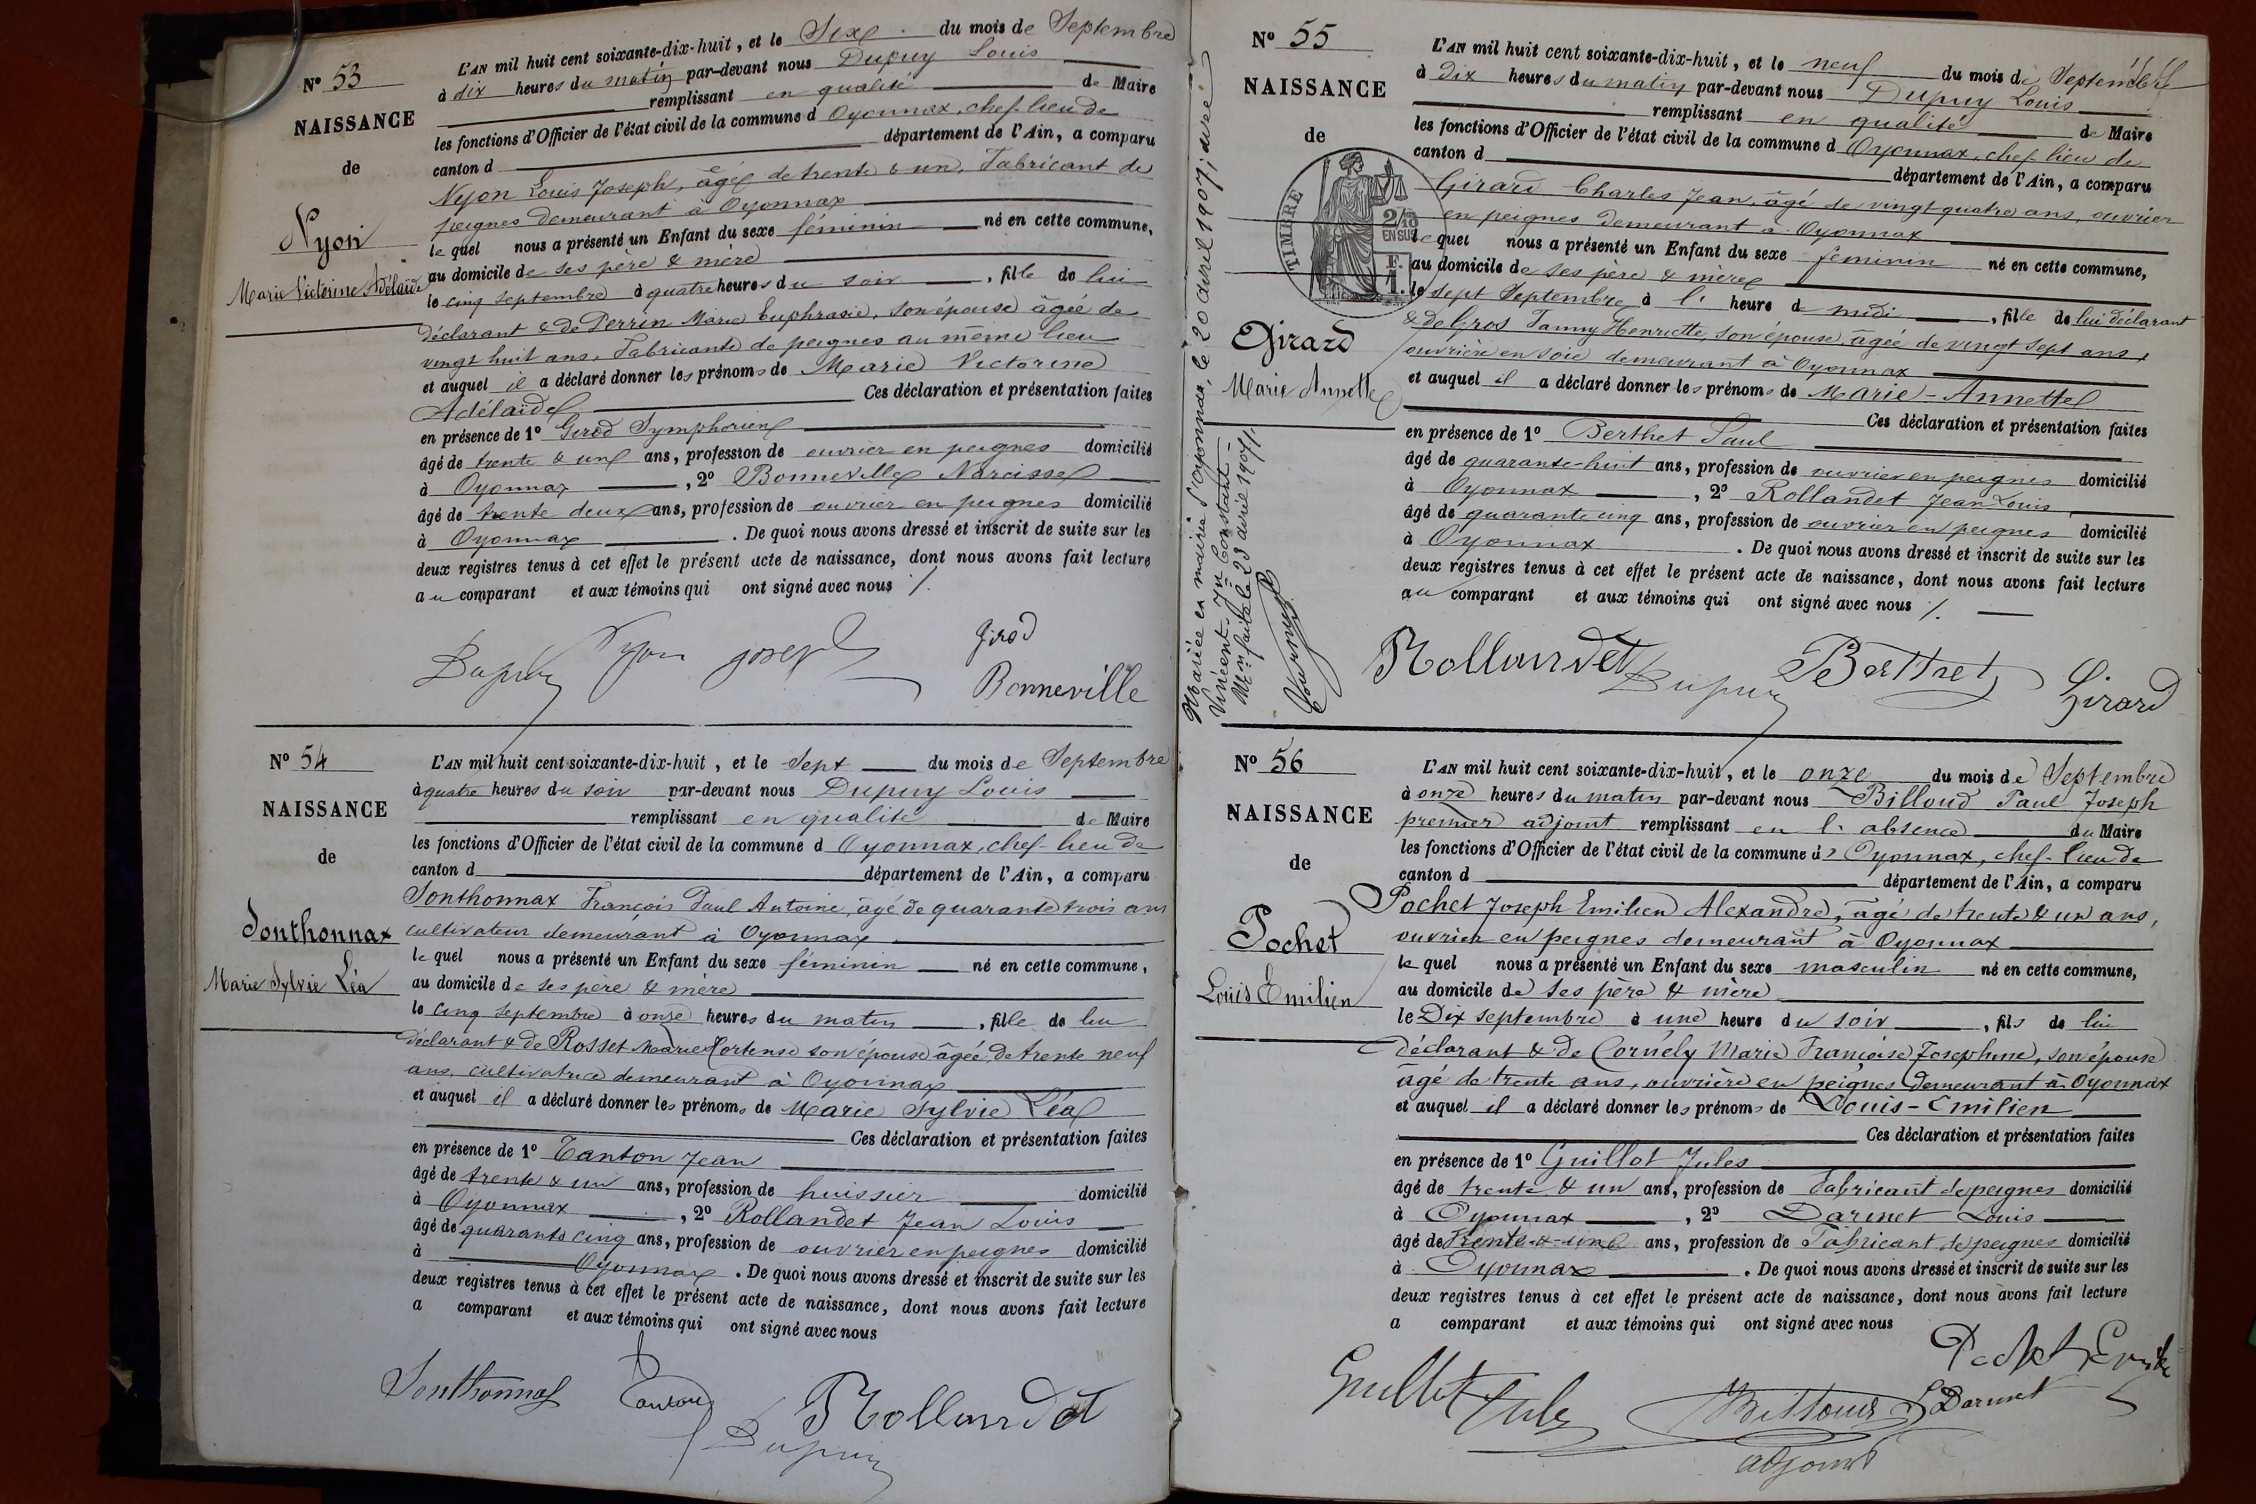 Nº 53
NAISSANCE
de
Nyon
Marie Victorine Adélaïde
L'AN mil huit cent soixante-dix-huit, et le Six du mois de Septembre
à dix heures du matin par-devant nous Dupuy Louis
remplissant en qualité de Maire
les fonctions d'Officier de l'état civil de la commune d Oyonnax, chef-lieu de
canton d département de l'Ain, a comparu
Nyon Louis Joseph, âgé de trente & un, Fabricant de
peignes demeurant à Oyonnax
lequel nous a présenté un Enfant du sexe féminin né en cette commune,
au domicile de ses père & mère
le cinq septembre à quatre heures du soir, fille de lui
déclarant & de Perrin Marie Euphrasie, son épouse âgée de
vingt huit ans, Fabricante de peignes au même lieu
et auquel il a déclaré donner les prénoms de Marie Victorine
Adélaïde Ces déclaration et présentation faites
en présence de 1º Girod Symphorien
âgé de trente & un ans, profession de ouvrier en peignes domicilié
à Oyonnax, 2º Bonneville Narcisse
âgé de trente deux ans, profession de ouvrier en peignes domicilié
à Oyonnax. De quoi nous avons dressé et inscrit de suite sur les
deux registres tenus à cet effet le présent acte de naissance, dont nous avons fait lecture
au comparant et aux témoins qui ont signé avec nous /.
Dupuy Nyon Joseph Girod
Bonneville
Nº 54
NAISSANCE
de
Sonthonnax
Marie Sylvie Léa
L'AN mil huit cent soixante-dix-huit, et le Sept du mois de Septembre
à quatre heures du soir par-devant nous Dupuy Louis
remplissant en qualité de Maire
les fonctions d'Officier de l'état civil de la commune d Oyonnax, chef-lieu de
canton d département de l'Ain, a comparu
Sonthonnax François Paul Antoine, âgé de quarante trois ans
cultivateur demeurant à Oyonnax
lequel nous a présenté un Enfant du sexe féminin né en cette commune,
au domicile de ses père & mère
le cinq septembre à onze heures du matin, fille de lui
déclarant & de Rosset Marie Hortense son épouse âgée de trente neuf
ans, cultivatrice demeurant à Oyonnax
et auquel il a déclaré donner les prénoms de Marie Sylvie Léa
Ces déclaration et présentation faites
en présence de 1º Tanton Jean
âgé de trente & un ans, profession de huissier domicilié
à Oyonnax, 2º Rollandet Jean Louis
âgé de quarante cinq ans, profession de ouvrier en peignes domicilié
à Oyonnax. De quoi nous avons dressé et inscrit de suite sur les
deux registres tenus à cet effet le présent acte de naissance, dont nous avons fait lecture
a comparant et aux témoins qui ont signé avec nous
Sonthonnax Tanton Rollandet
Dupuy
Nº 55
NAISSANCE
de
TIMBRE
2/10
EN SUS
F.
1.
Girard
Marie Annette
Mariée en mairie d'Oyonnax, le 20 avril 1907, avec
Vincent, Jn Constant
Mon faite le 23 avril 1907.
L'AN mil huit cent soixante-dix-huit, et le neuf du mois de Septembre
à dix heures du matin par-devant nous Dupuy Louis
remplissant en qualité de Maire
les fonctions d'Officier de l'état civil de la commune d Oyonnax, chef lieu de
canton d département de l'Ain, a comparu
Girard Charles Jean, âgé de vingt quatre ans, ouvrier
en peignes demeurant à Oyonnax
lequel nous a présenté un Enfant du sexe féminin né en cette commune,
au domicile de ses père & mère
le sept Septembre à l' heure d midi, fille de lui déclarant
& de Gros Fanny Henriette, son épouse âgée de vingt sept ans,
ouvrière en soie demeurant à Oyonnax
et auquel il a déclaré donner les prénoms de Marie-Annette
Ces déclaration et présentation faites
en présence de 1º Berthet Paul
âgé de quarante-huit ans, profession de ouvrier en peignes domicilié
à Oyonnax, 2º Rollandet Jean Louis
âgé de quarante cinq ans, profession de ouvrier en peignes domicilié
à Oyonnax. De quoi nous avons dressé et inscrit de suite sur les
deux registres tenus à cet effet le présent acte de naissance, dont nous avons fait lecture
au comparant et aux témoins qui ont signé avec nous /.
Rollandet Dupuy Berthet Girard
Nº 56
NAISSANCE
de
Pochet
Louis Emilien
L'AN mil huit cent soixante-dix-huit, et le onze du mois de Septembre
à onze heures du matin par-devant nous Billoud Paul Joseph
premier adjoint remplissant en l'absence du Maire
les fonctions d'Officier de l'état civil de la commune d' Oyonnax, chef-lieu de
canton d département de l'Ain, a comparu
Pochet Joseph Emilien Alexandre, âgé de trente & un ans,
ouvrier en peignes demeurant à Oyonnax
lequel nous a présenté un Enfant du sexe masculin né en cette commune,
au domicile de ses père & mère
le Dix septembre à une heure du soir, fils de lui
déclarant & de Cornély Marie Françoise Josephine, son épouse
âgé de trente ans, ouvrière en peignes demeurant à Oyonnax
et auquel il a déclaré donner les prénoms de Louis-Emilien
Ces déclaration et présentation faites
en présence de 1º Guillot Jules
âgé de trente & un ans, profession de Fabricant de peignes domicilié
à Oyonnax, 2º Darmet Louis
âgé de trente & un ans, profession de Fabricant de peignes domicilié
à Oyonnax. De quoi nous avons dressé et inscrit de suite sur les
deux registres tenus à cet effet le présent acte de naissance, dont nous avons fait lecture
a comparant et aux témoins qui ont signé avec nous
Pochet Emile
Guillot Jules Billoud L Darmet
adjoint